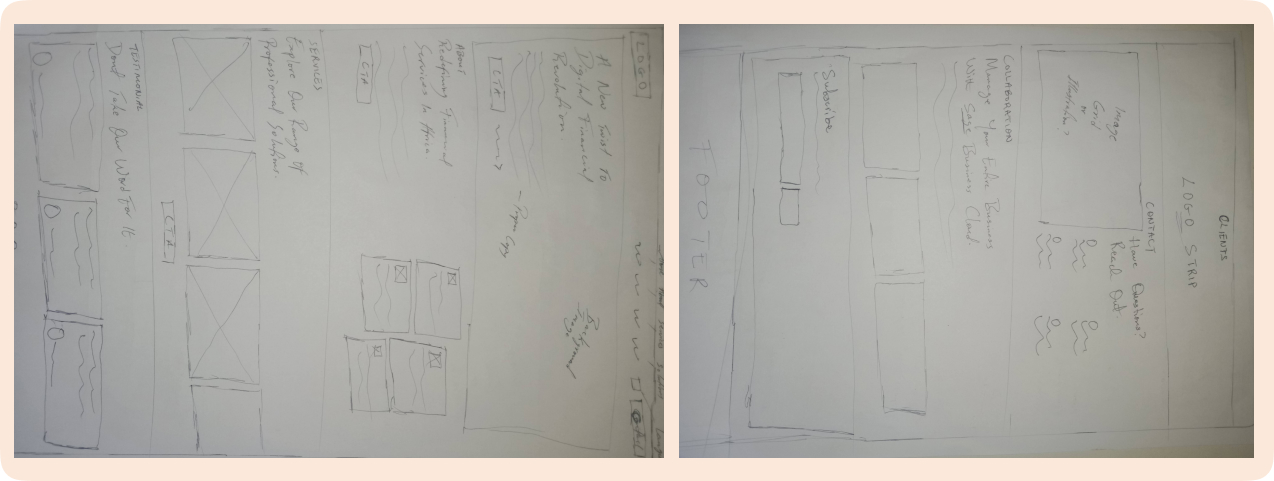 LOGO
A New Twist To
Digital Financial
Revolution.
CTA
Background
Image
ABOUT
Redefining Financial
Services In Africa
CTA
SERVICES
Explore Our Range Of
Professional Solutions.
CTA
TESTIMONIAL
Don't Take Our Word For It
CLIENTS
LOGO STRIP
CONTACT
Have Questions?
Reach Out.
Image
Grid
or
Illustration?
COLLABORATION
Manage Your Entire Business
With Sage Business Cloud.
Subscribe
FOOTER